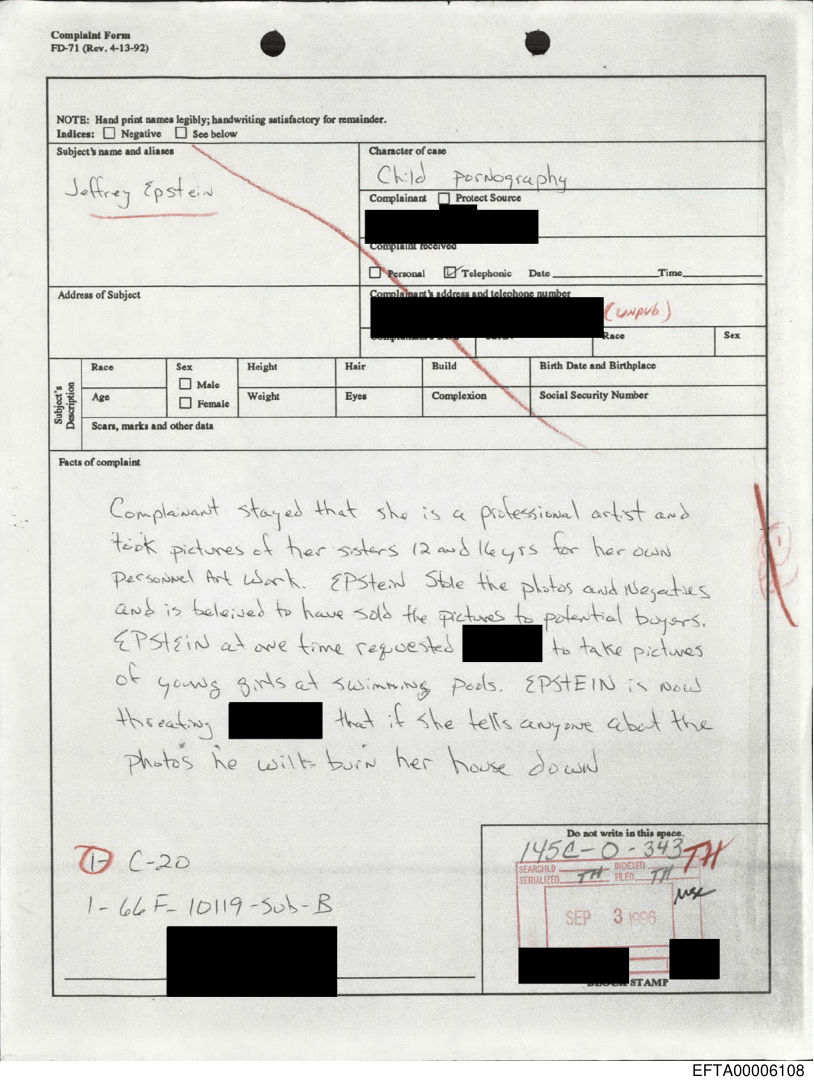 Complaint Form
FD-71 (Rev. 4-13-92)
NOTE: Hand print names legibly; handwriting satisfactory for remainder.
Indices: Negative See below
Subject's name and aliases
Jeffrey Epstein
Character of case
Child pornography
Complainant Protect Source
Complaint received
Personal Telephonic Date Time
Address of Subject
Complainant's address and telephone number
(unpub)
Race Sex
Subject's Description
Race Sex Height Hair Build Birth Date and Birthplace
Male
Age Female Weight Eyes Complexion Social Security Number
Scars, marks and other data
Facts of complaint
Complainant stayed that she is a professional artist and
took pictures of her sisters 12 and 16 yrs for her own
personnel Art work. EPstein Stole the photos and Negaties
and is beleived to have sold the pictures to potential buyers.
EPSTEIN at one time requested to take pictures
of young girls at swimming pools. EPSTEIN is now
threating that if she tells anyone about the
photos he will burn her house down
1- C-20
1- 66F-10119-Sub-B
Do not write in this space.
145C-0-343
TH
SEARCHED INDEXED
SERIALIZED TH FILED TH
SEP 3 1996
BLOCK STAMP
EFTA00006108